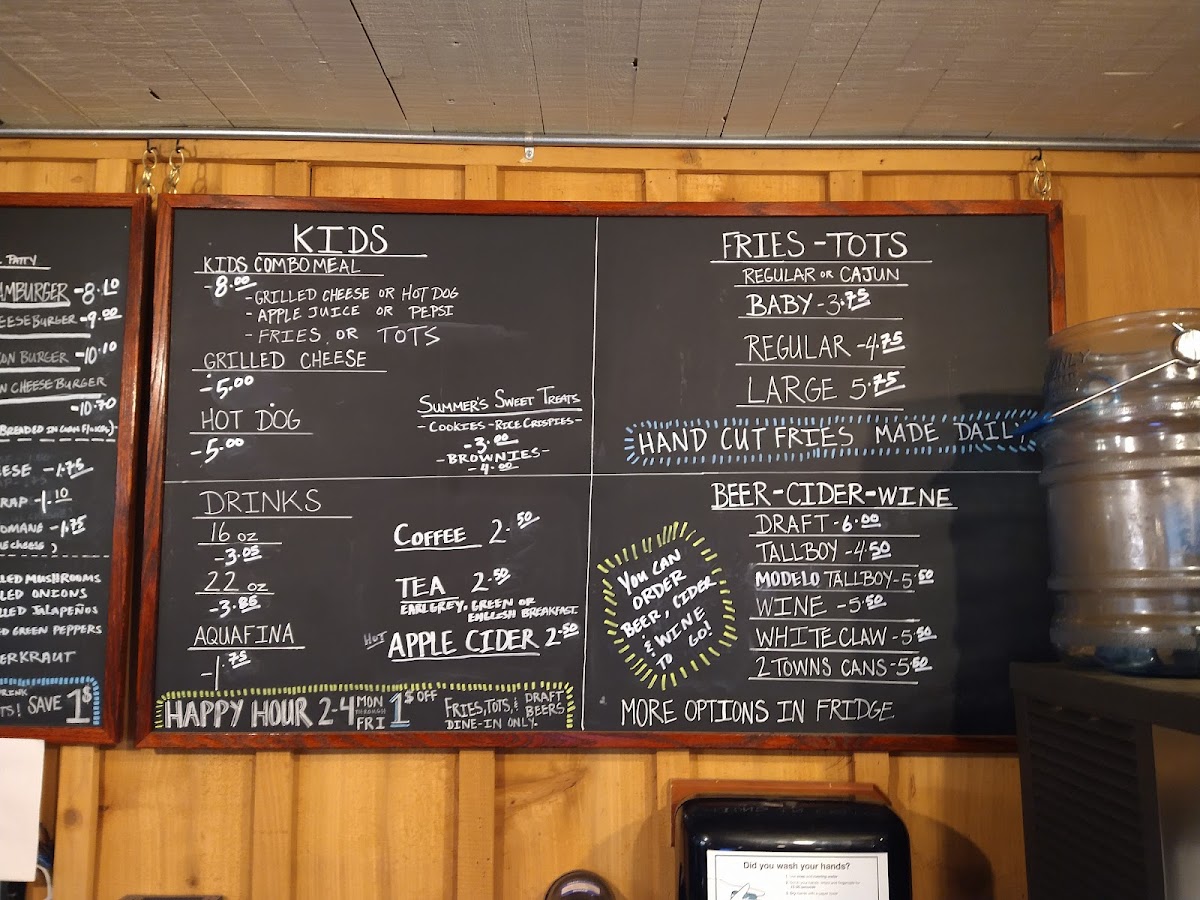 PATTY
HAMBURGER -8.10
CHEESEBURGER -9.00
BURGER -10.10
CHEESEBURGER
-10.70
(BREADED IN CORN FLAKES)
-1.75
-1.10
-1.75
MUSHROOMS
ONIONS
JALAPEÑOS
GREEN PEPPERS
SAVE 1$
KIDS
KIDS COMBO MEAL
-8.00
-GRILLED CHEESE OR HOT DOG
-APPLE JUICE OR PEPSI
-FRIES OR TOTS
GRILLED CHEESE
-5.00
HOT DOG
-5.00
SUMMER'S SWEET TREATS
-COOKIES-RICE CRISPIES-
-3.00
-BROWNIES-
-4.00
FRIES-TOTS
REGULAR OR CAJUN
BABY-3.75
REGULAR-4.75
LARGE 5.75
HAND CUT FRIES MADE DAILY
DRINKS
16 OZ
-3.05
22 OZ
-3.85
AQUAFINA
-1.75
COFFEE 2.50
TEA 2.50
EARL GREY, GREEN OR
ENGLISH BREAKFAST
HOT APPLE CIDER 2.50
HAPPY HOUR 2-4 MON THROUGH FRI 1$ OFF FRIES, TOTS, & DRAFT BEERS
DINE-IN ONLY.
BEER-CIDER-WINE
DRAFT-6.00
TALLBOY-4.50
MODELO TALLBOY-5.50
WINE-5.50
WHITE CLAW-5.50
2 TOWNS CANS-5.50
YOU CAN
ORDER
BEER, CIDER
& WINE
TO GO!
MORE OPTIONS IN FRIDGE
Did you wash your hands?